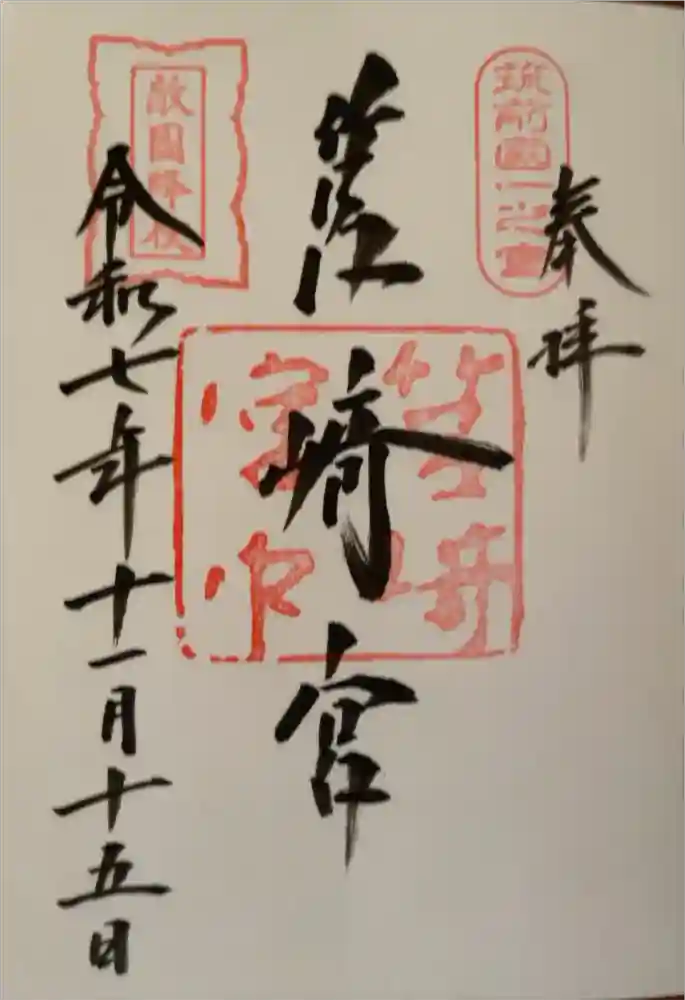 奉拝
筑前國一之宮
筥崎宮
筥崎宮印
敵國降伏
令和七年十一月十五日